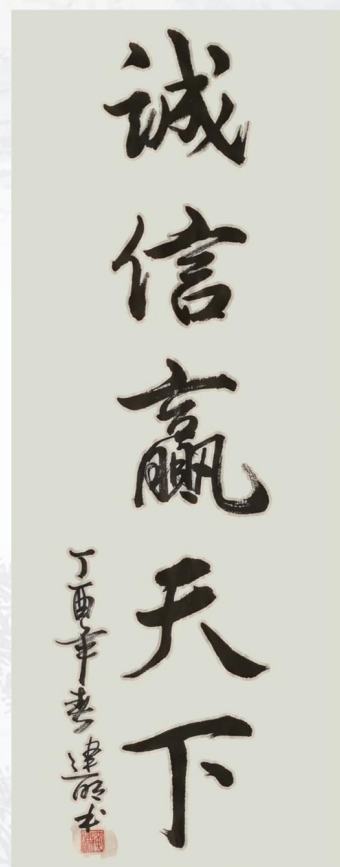 诚信赢天下
丁酉年春建明书